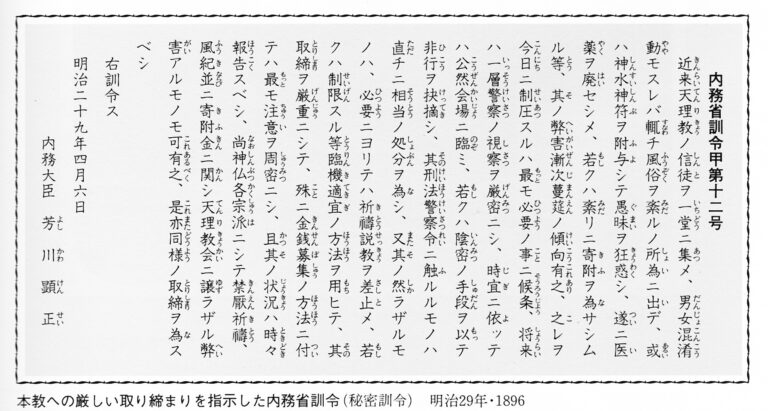 内務省訓令甲第十二号
近来天理教ノ信徒ヲ一堂ニ集メ、男女混淆
動モスレバ輒チ風俗ヲ紊ルノ所為ニ出デ、或
ハ神水神符ヲ附与シテ愚昧ヲ狂惑シ、遂ニ医
薬ヲ廃セシメ、若クハ紊リニ寄附ヲ為サシム
ル等、其ノ弊害漸次蔓莚ノ傾向有之、之レヲ
今日ニ制圧スルハ最モ必要ノ事ニ候条、将来
ハ一層警察ノ視察ヲ厳密ニシ、時宜ニ依ッテ
ハ公然会場ニ臨ミ、若クハ陰密ノ手段ヲ以テ
非行ヲ抉摘シ、其刑法警察令ニ触ルルモノハ
直チニ相当ノ処分ヲ為シ、又其ノ然ラザルモ
ノハ、必要ニヨリテハ祈禱説教ヲ差止メ、若
クハ制限スル等臨機適宜ノ方法ヲ用ヒテ、其
取締ヲ厳重ニシテ、殊ニ金銭募集ノ方法ニ付
テハ最モ注意ヲ周密ニシ、且其ノ状況ハ時々
報告スベシ、尚神仏各宗派ニシテ禁厭祈禱、
風紀並ニ寄附金ニ関シ天理教会ニ譲ラザル弊
害アルモノモ可有之、是亦同様ノ取締ヲ為ス
ベシ
右訓令ス
明治二十九年四月六日
内務大臣 芳川顕正
本教への厳しい取り締まりを指示した内務省訓令(秘密訓令) 明治29年・1896